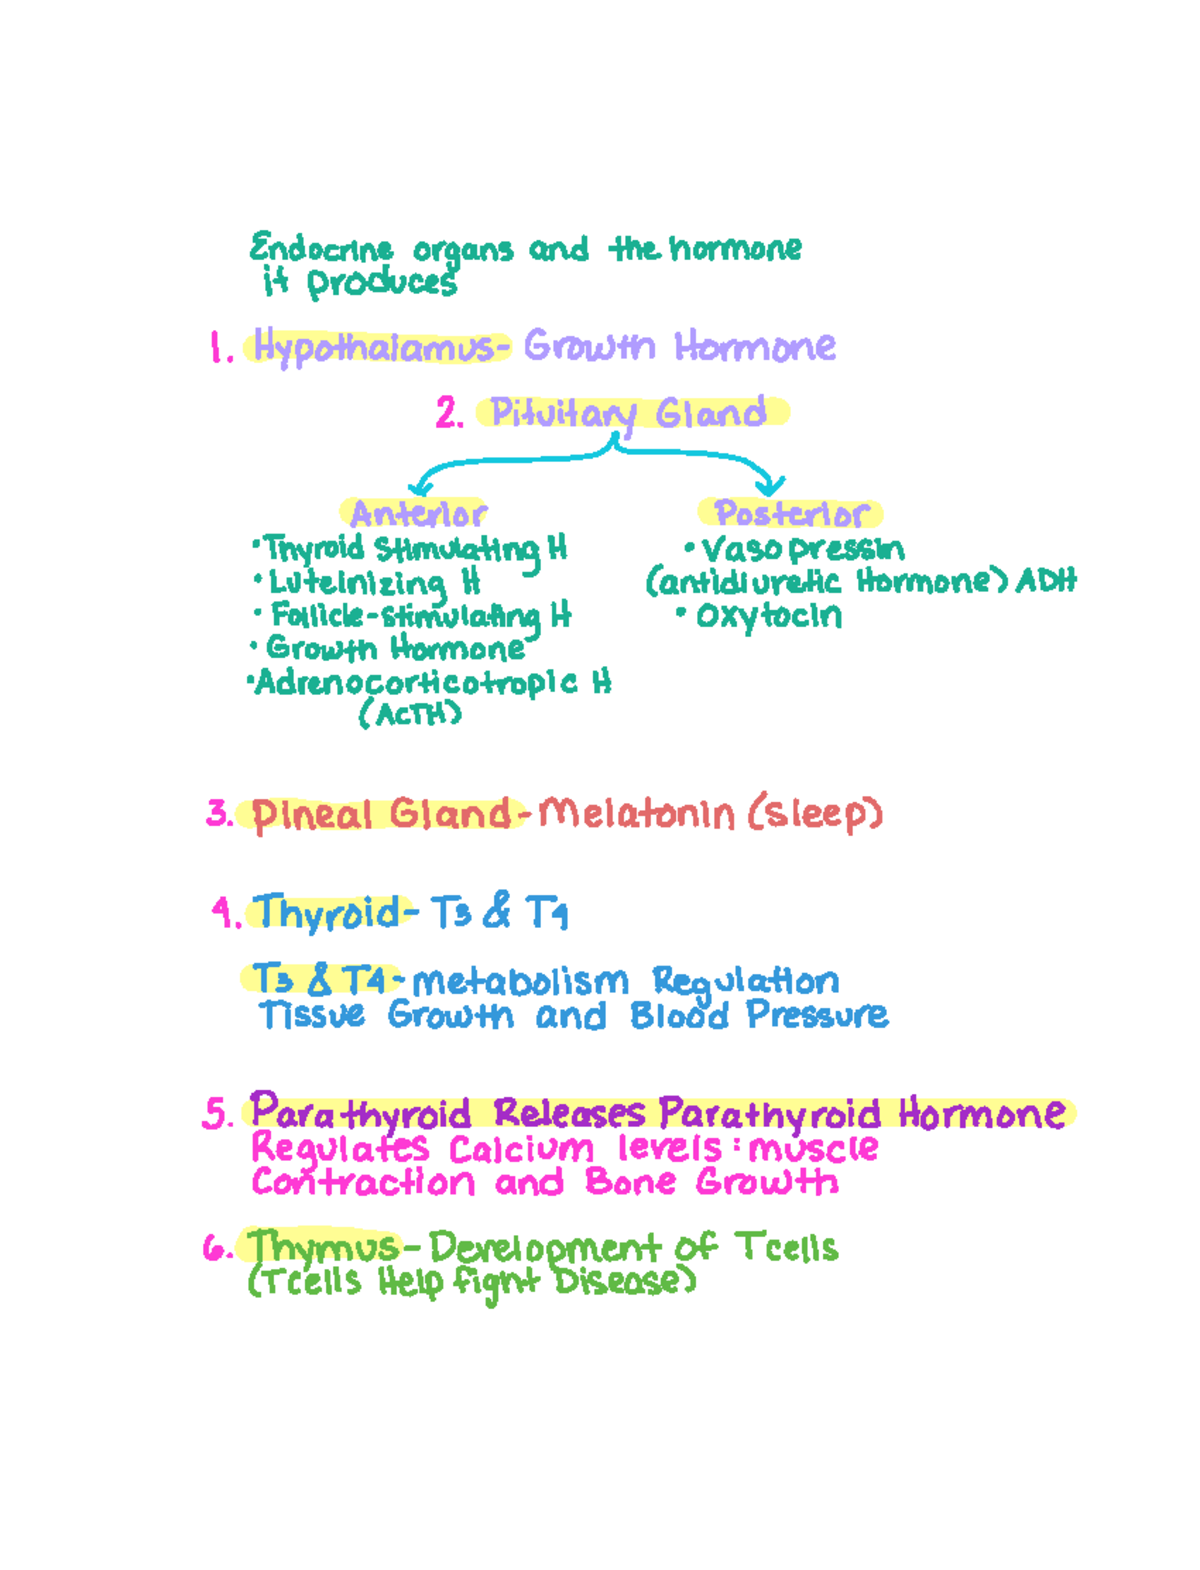 Endocrine organs and the hormone
it produces
1. Hypothalamus- Growth Hormone
2. Pituitary Gland
Anterior
• Thyroid Stimulating H
• Luteinizing H
• Follicle-stimulating H
• Growth Hormone
• Adrenocorticotropic H
(ACTH)
Posterior
• Vasopressin
(antidiuretic Hormone) ADH
• Oxytocin
3. Pineal Gland-Melatonin (sleep)
4. Thyroid- T3 & T4
T3 & T4-metabolism Regulation
Tissue Growth and Blood Pressure
5. Parathyroid Releases Parathyroid Hormone
Regulates Calcium levels: muscle
Contraction and Bone Growth
6. Thymus-Development of Tcells
(Tcells Help fight Disease)